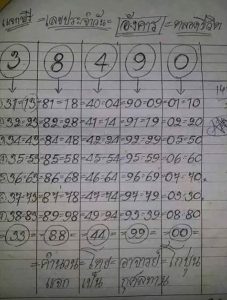 แจกฟรี=เลขประจำวัน=อังคาร=ตลอดชีวิต
3 8 4 9 0
31-13=81-18=40-04=90-09=01-10
32-23=82-28=41-14=91-19=02-20
34-43=84-48=42-24=92-29=05-50
35-53=85-58=45-54=95-59=06-60
36-63=86-68=46-64=96-69=07-70
37-73=87-78=47-74=97-79=03-30
38-83=89-98=49-94=93-39=08-80
33=88=44=99=00
=คำนวน=โดย=อาจารย์=
แจก เป็น กุศลทาน